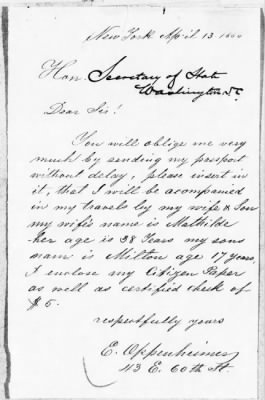 New York April 13
Hon. Secretary of State
Washington D.C.
Dear Sir!
You will oblige me very
much by sending my passport
without delay, please insert in
it, that I will be acompanied
in my travels by my wife & Son
my wife's name is Mathilde
her age is 38 Years my sons
name is Milton age 17 years,
I enclose my Citizen Paper
as well as certified check of
$5.
respectfully yours
E. Oppenheimer
43 E. 60th St.